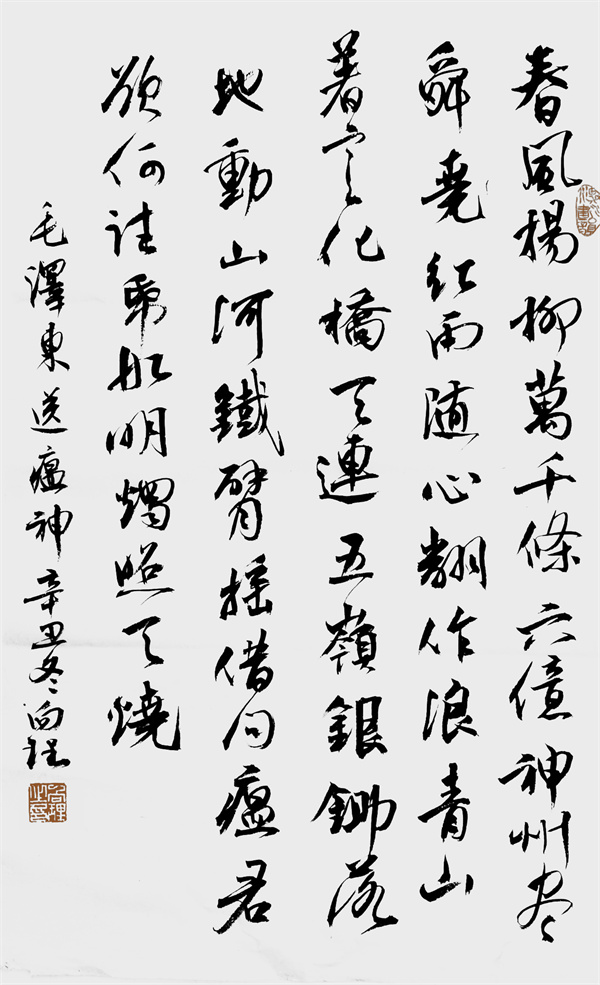 春風楊柳萬千條六億神州尽
舜堯紅雨随心翻作浪青山
著意化橋天連五嶺銀鋤落
地動山河鐵臂摇借问瘟君
欲何往帋船明燭照天燒
毛澤東送瘟神辛丑冬